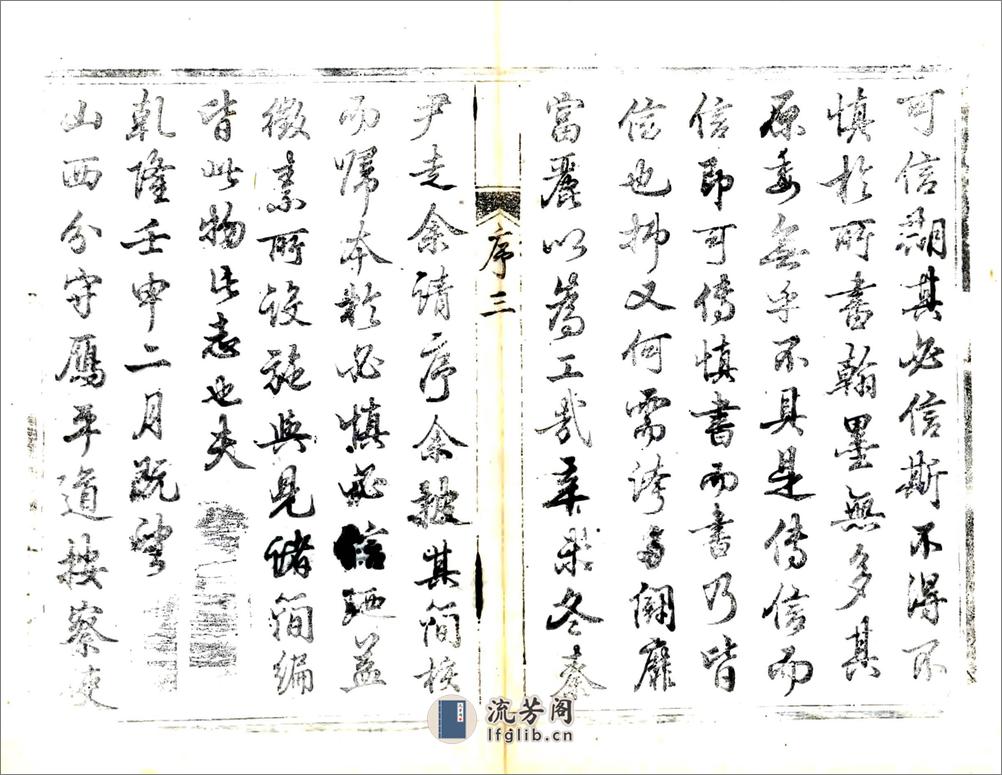 可信翮其必信斯不得不
慎於所書翰墨無多其
原委無乎不具是傳信而
信即可傳慎書而書乃皆
信也抑又何需誇多鬭靡
富麗以為工哉辛未冬秦
序三
尹走余請序余披其簡核
而歸本於必慎必信迺益
徵素所設施與見諸簡編
皆此物此志也夫
乾隆壬申二月既望
山西分守鴈平道按察使
流芳阁
lfglib.cn